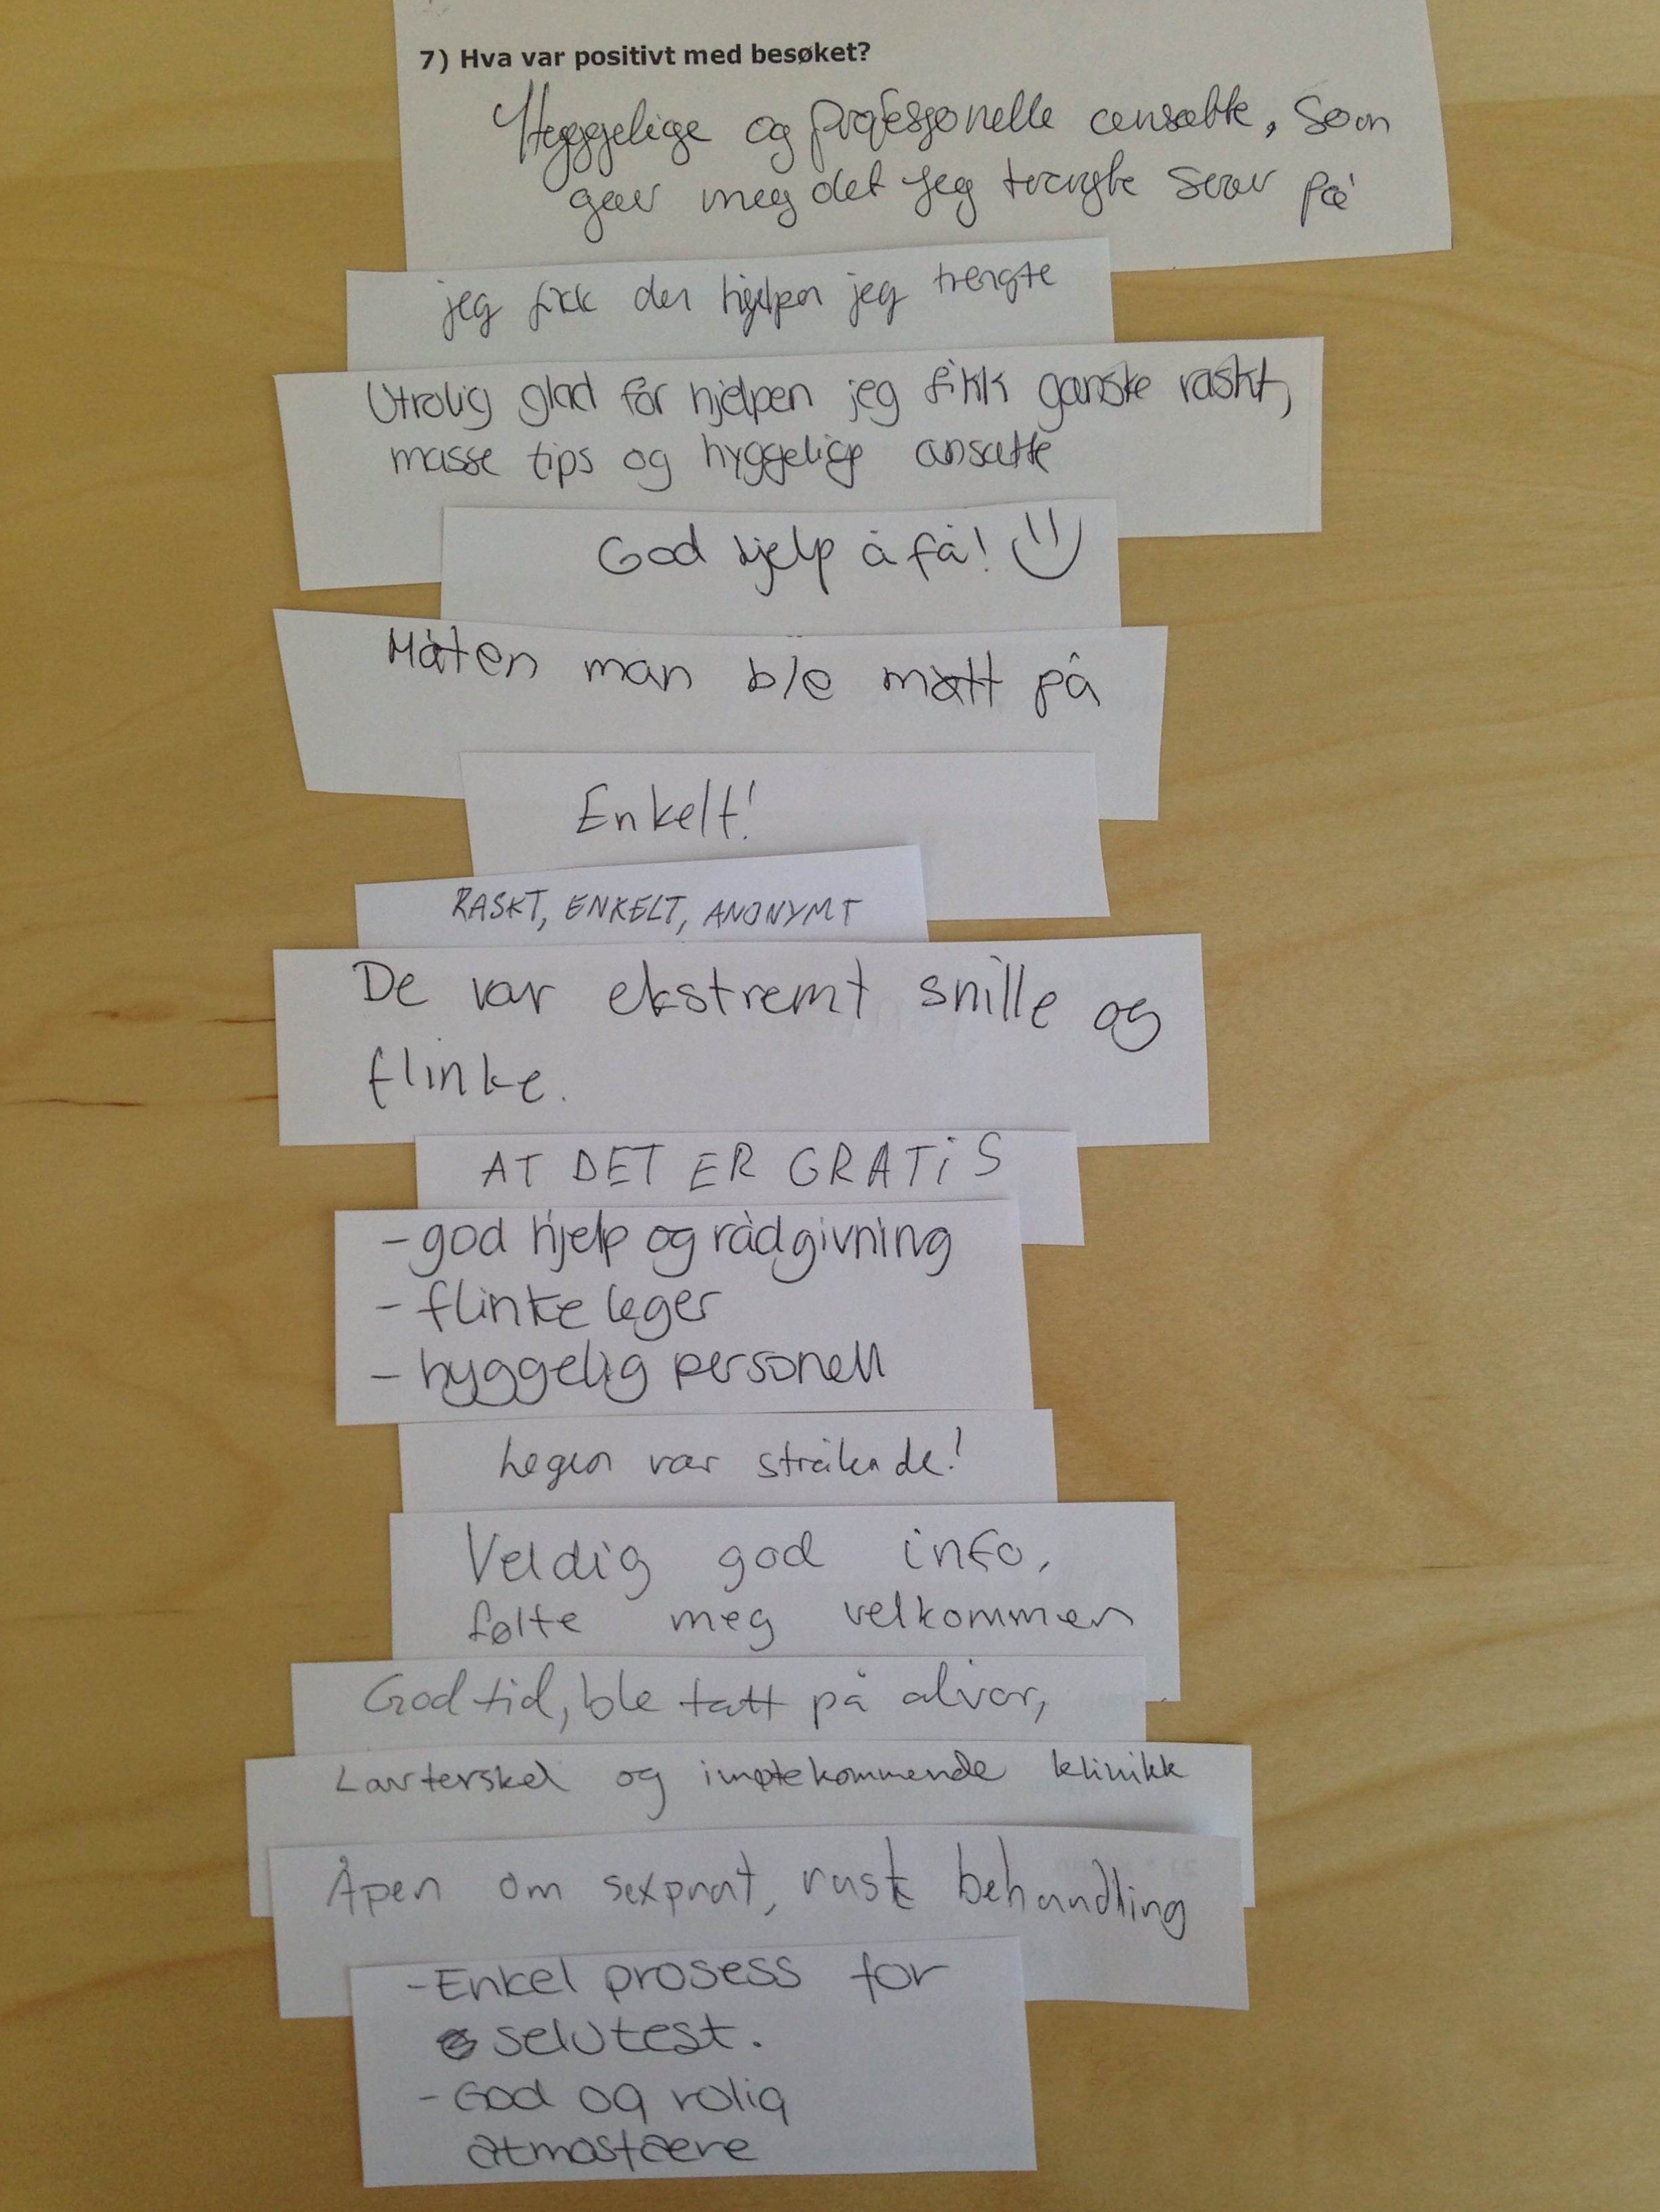 7) Hva var positivt med besøket?
Hyggelige og profesjonelle ansatte, som
gav meg det jeg trengte svar på
jeg fikk den hjelpen jeg trengte
Utrolig glad for hjelpen jeg fikk ganske raskt,
masse tips og hyggelige ansatte
God hjelp å få!
Måten man ble møtt på
Enkelt!
RASKT, ENKELT, ANONYMT
De var ekstremt snille og
flinke.
AT DET ER GRATiS
- god hjelp og rådgivning
- flinke leger
- hyggelig personell
Legen var strålende!
Veldig god info,
følte meg velkommen
God tid, ble tatt på alvor,
Lavterskel og imøtekommende klinikk
Åpen om sexprat, rask behandling
- Enkel prosess for
selvtest.
- God og rolig
atmosfære